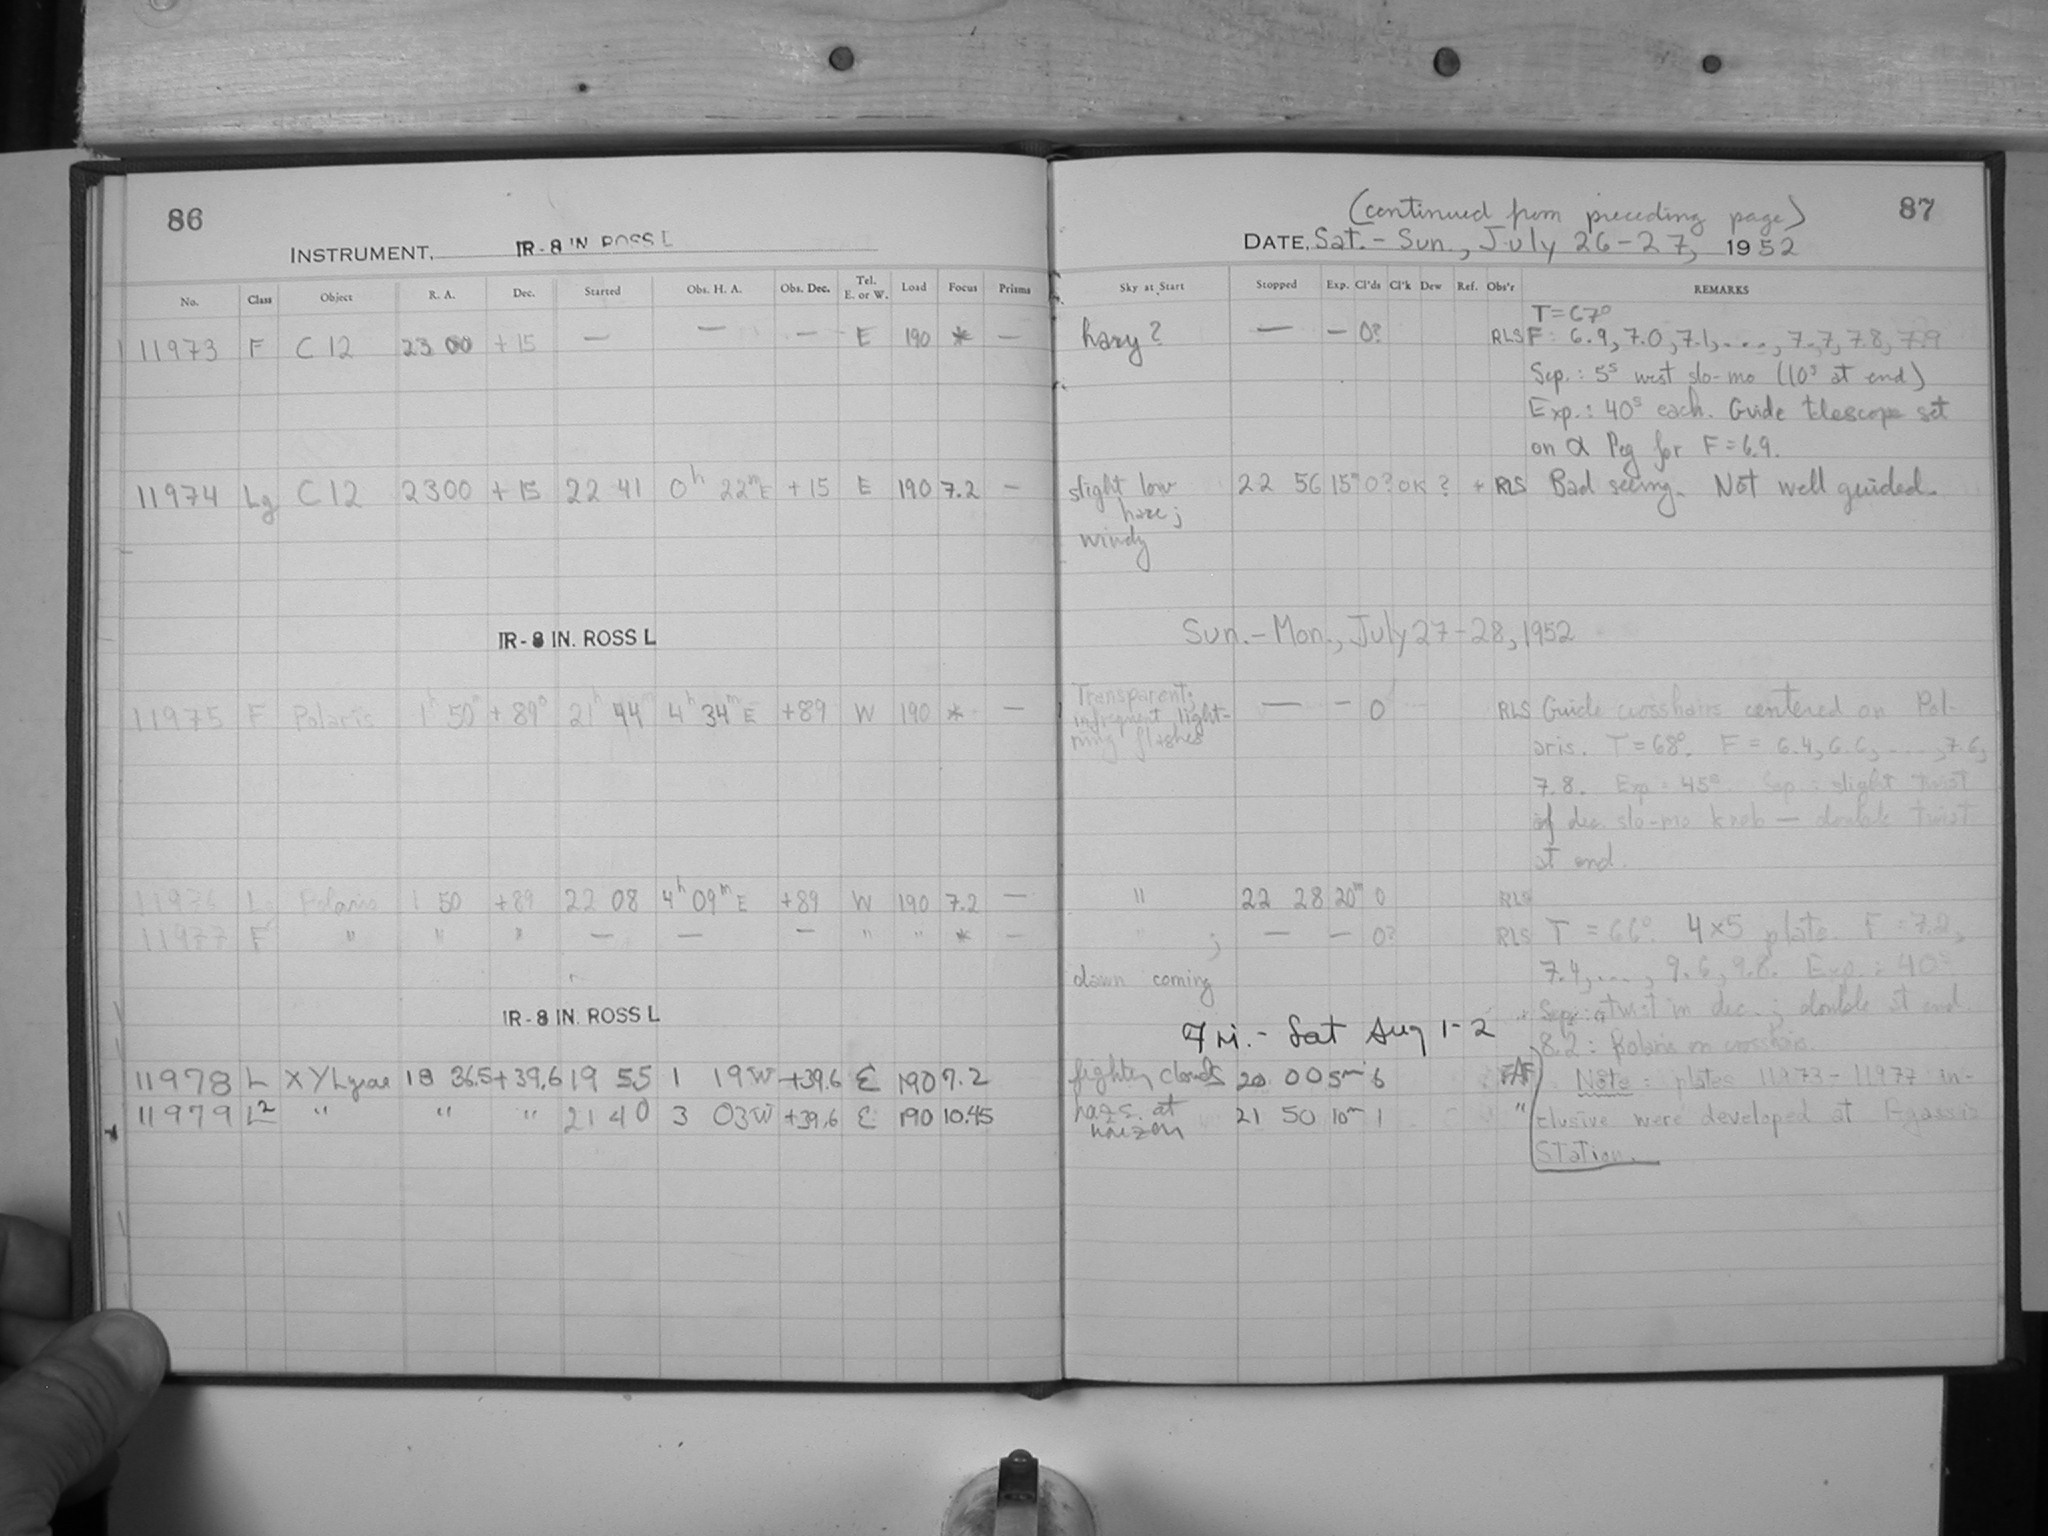 86
INSTRUMENT, IR-8 IN ROSS L
No. Class Object R. A. Dec. Started Obs. H. A. Obs. Dec. Tel. E. or W. Load Focus Prisms
11973 F C 12 23 00 +15 — — — E 190 * —
11974 Lg C 12 23 00 +15 22 41 0h 22m E +15 E 190 7.2 —
IR-8 IN. ROSS L
11975 F Polaris 1h 50m +89° 21h 44m 4h 34m E +89 W 190 * —
11976 Lg Polaris 1 50 +89 22 08 4h 09m E +89 W 190 7.2 —
11977 F " " " — — — " " * —
IR-8 IN. ROSS L
11978 L XY Lyrae 18 36.5 +39.6 19 55 1 19W +39.6 E 190 7.2
11979 L2 " " " 21 40 3 03W +39.6 E 190 10.45
(continued from preceding page) 87
DATE, Sat. - Sun., July 26-27, 1952
Sky at Start Stopped Exp. Cl'ds Cl'k Dew Ref. Obs'r REMARKS
T = 67°
hazy? — — 0? RLS F: 6.9, 7.0, 7.1, ...., 7.7, 7.8, 7.9
Sep.: 5s west slo-mo (10s at end)
Exp.: 40s each. Guide telescope set
on α Peg for F = 6.9.
slight low 22 56 15m 0? OK ? + RLS Bad seeing. Not well guided.
haze;
windy
Sun. - Mon., July 27-28, 1952
Transparent;
infrequent light- — — 0 RLS Guide crosshairs centered on Pol-
ning flashes
aris. T = 68°. F = 6.4, 6.6, ...., 7.6,
7.8. Exp: 45s. Sep.: slight twist
of dec. slo-mo knob — double twist
at end.
" 22 28 20m 0 RLS
" ; — — 0? RLS T = 66°. 4x5 plate. F = 7.2,
dawn coming 7.4, ...., 9.6, 9.8. Exp.: 40s.
twist in dec.; double at end.
Fri. - Sat Aug 1-2
8.2: Polaris on crosshair.
clouds 20 00 5m 6 FAF Note: plates 11973-11977 in-
haze at 21 50 10m 1 " clusive were developed at Agassiz
horizon
Station.